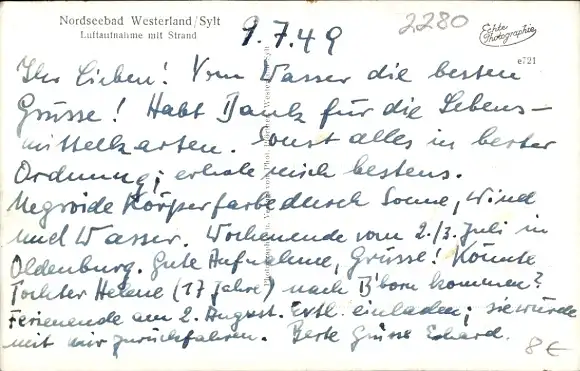 Nordseebad Westerland/Sylt
Luftaufnahme mit Strand
9.7.49
2280
Echte Photographie
e721
Ihr Lieben! Vom Wasser die besten
Grüsse! Habt Dank für die Lebens-
mittelkarten. Sonst alles in bester
Ordnung; erhole mich bestens.
Negroide Körperfarbe durch Sonne, Wind
und Wasser. Wochenende vom 2./3. Juli in
Oldenburg. Gute Aufnahme, Grüsse! Könnte
Tochter Helene (17 Jahre) nach B'born kommen?
Ferienende am 2. August. Evtl. einladen; sie würde
mit mir zurückfahren. Beste Grüsse Erhard.
8 €